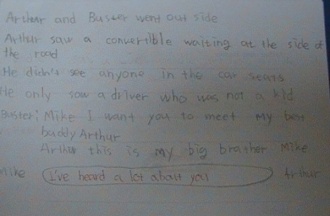 Arthur and Buster went out side
Arthur saw a convertible waiting at the side of
the road
He didn't see anyone in the car seats
He only saw a driver who was not a kid
Buster: Mike I want you to meet my best
buddy Arthur
Arthur this is my big brother Mike
Mike I've heard a lot about you Arthur